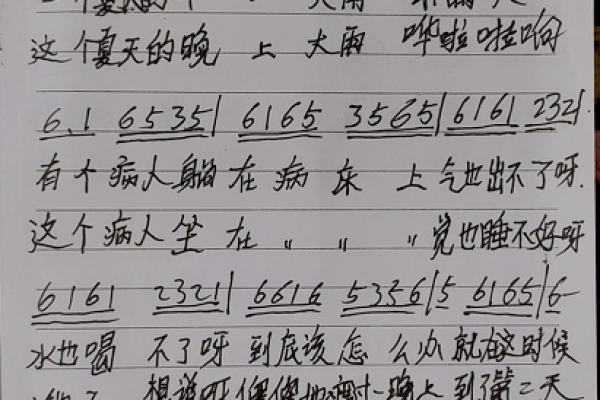 这个夏天的晚 上 大雨 哗啦啦响
6.1 6535| 6165 3565| 6161 2321
有个病人躺在病床 上气也出不了呀.
这个病人坐在 〃 〃 〃觉也睡不好呀
6161 2321| 6616 5356|5 6165|6-
水也喝 不了呀 到底该怎么办就在这时候
晚上到了第二天